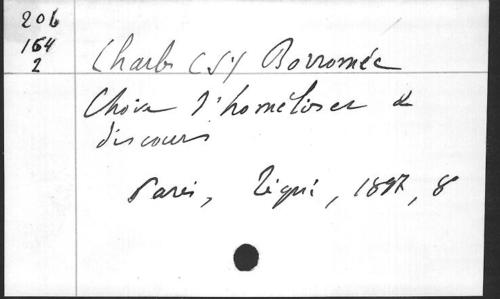 206
164
2
Charles (St) Borromée
Choix d'homélies et
discours
Paris, Téqui, 1897, 8